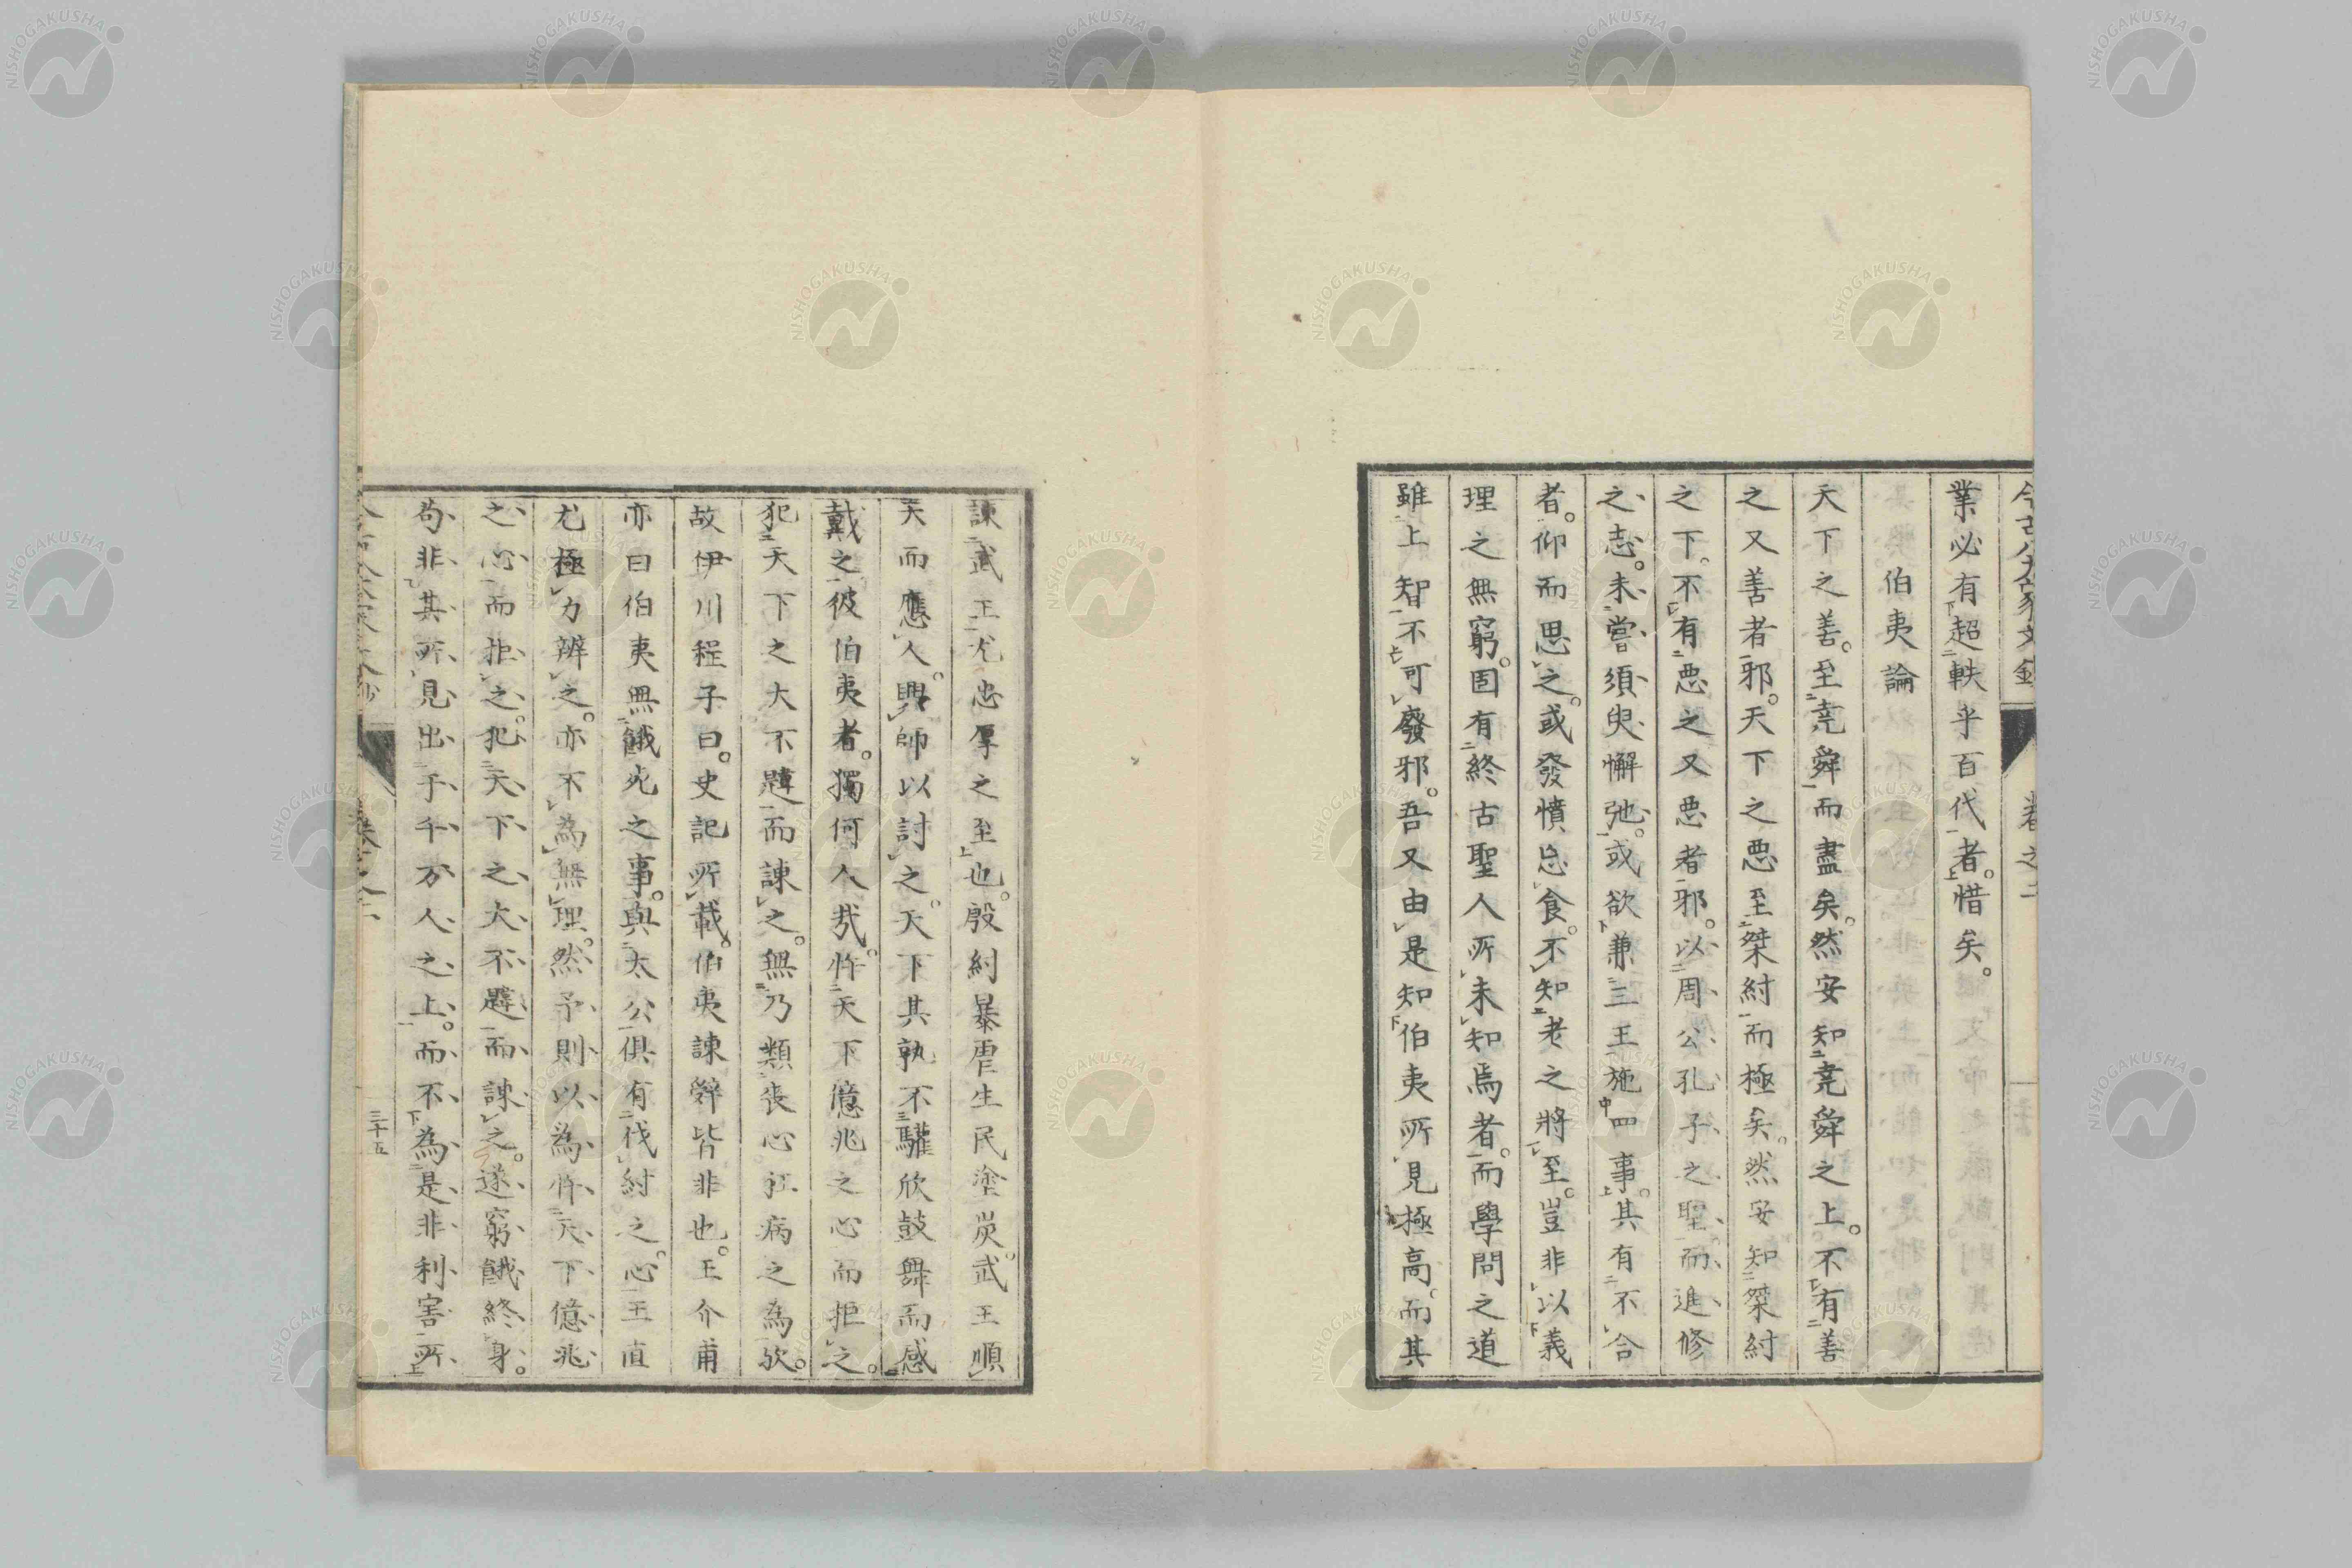 業必有超軼乎百代者。惜矣。
伯夷論
天下之善。至堯舜而盡矣。然安知堯舜之上。不有善
之又善者邪。天下之惡至桀紂而極矣。然安知桀紂
之下。不有惡之又惡者邪。以周公孔子之聖而進修
之志。未嘗須臾懈弛。或欲兼三王施四事。其有不合
者。仰而思之。或發憤忘食。不知老之將至。豈非以義
理之無窮。固有終古聖人所未知焉者。而學問之道
雖上智不可廢邪。吾又由是知伯夷所見極高。而其
諫武王尤忠厚之至也。殷紂暴虐生民塗炭。武王順
天而應人。興師以討之。天下其孰不驩欣鼓舞而感
戴之彼伯夷者。獨何人哉。忤天下億兆之心而拒之。
犯天下之大不韙而諫之。無乃類喪心狂病之為歟。
故伊川程子曰。史記所載。伯夷諫辭皆非也。王介甫
亦曰伯夷無餓死之事。與太公俱有伐紂之心。王直
尤極力辨之。亦不為無理。然予則以為忤天下億兆
之心而拒之。犯天下之大不韙而諫之。遂窮餓終身。
苟非其所見出于千万人之上。而不為是非利害所
三十五
NISHOGAKUSHA